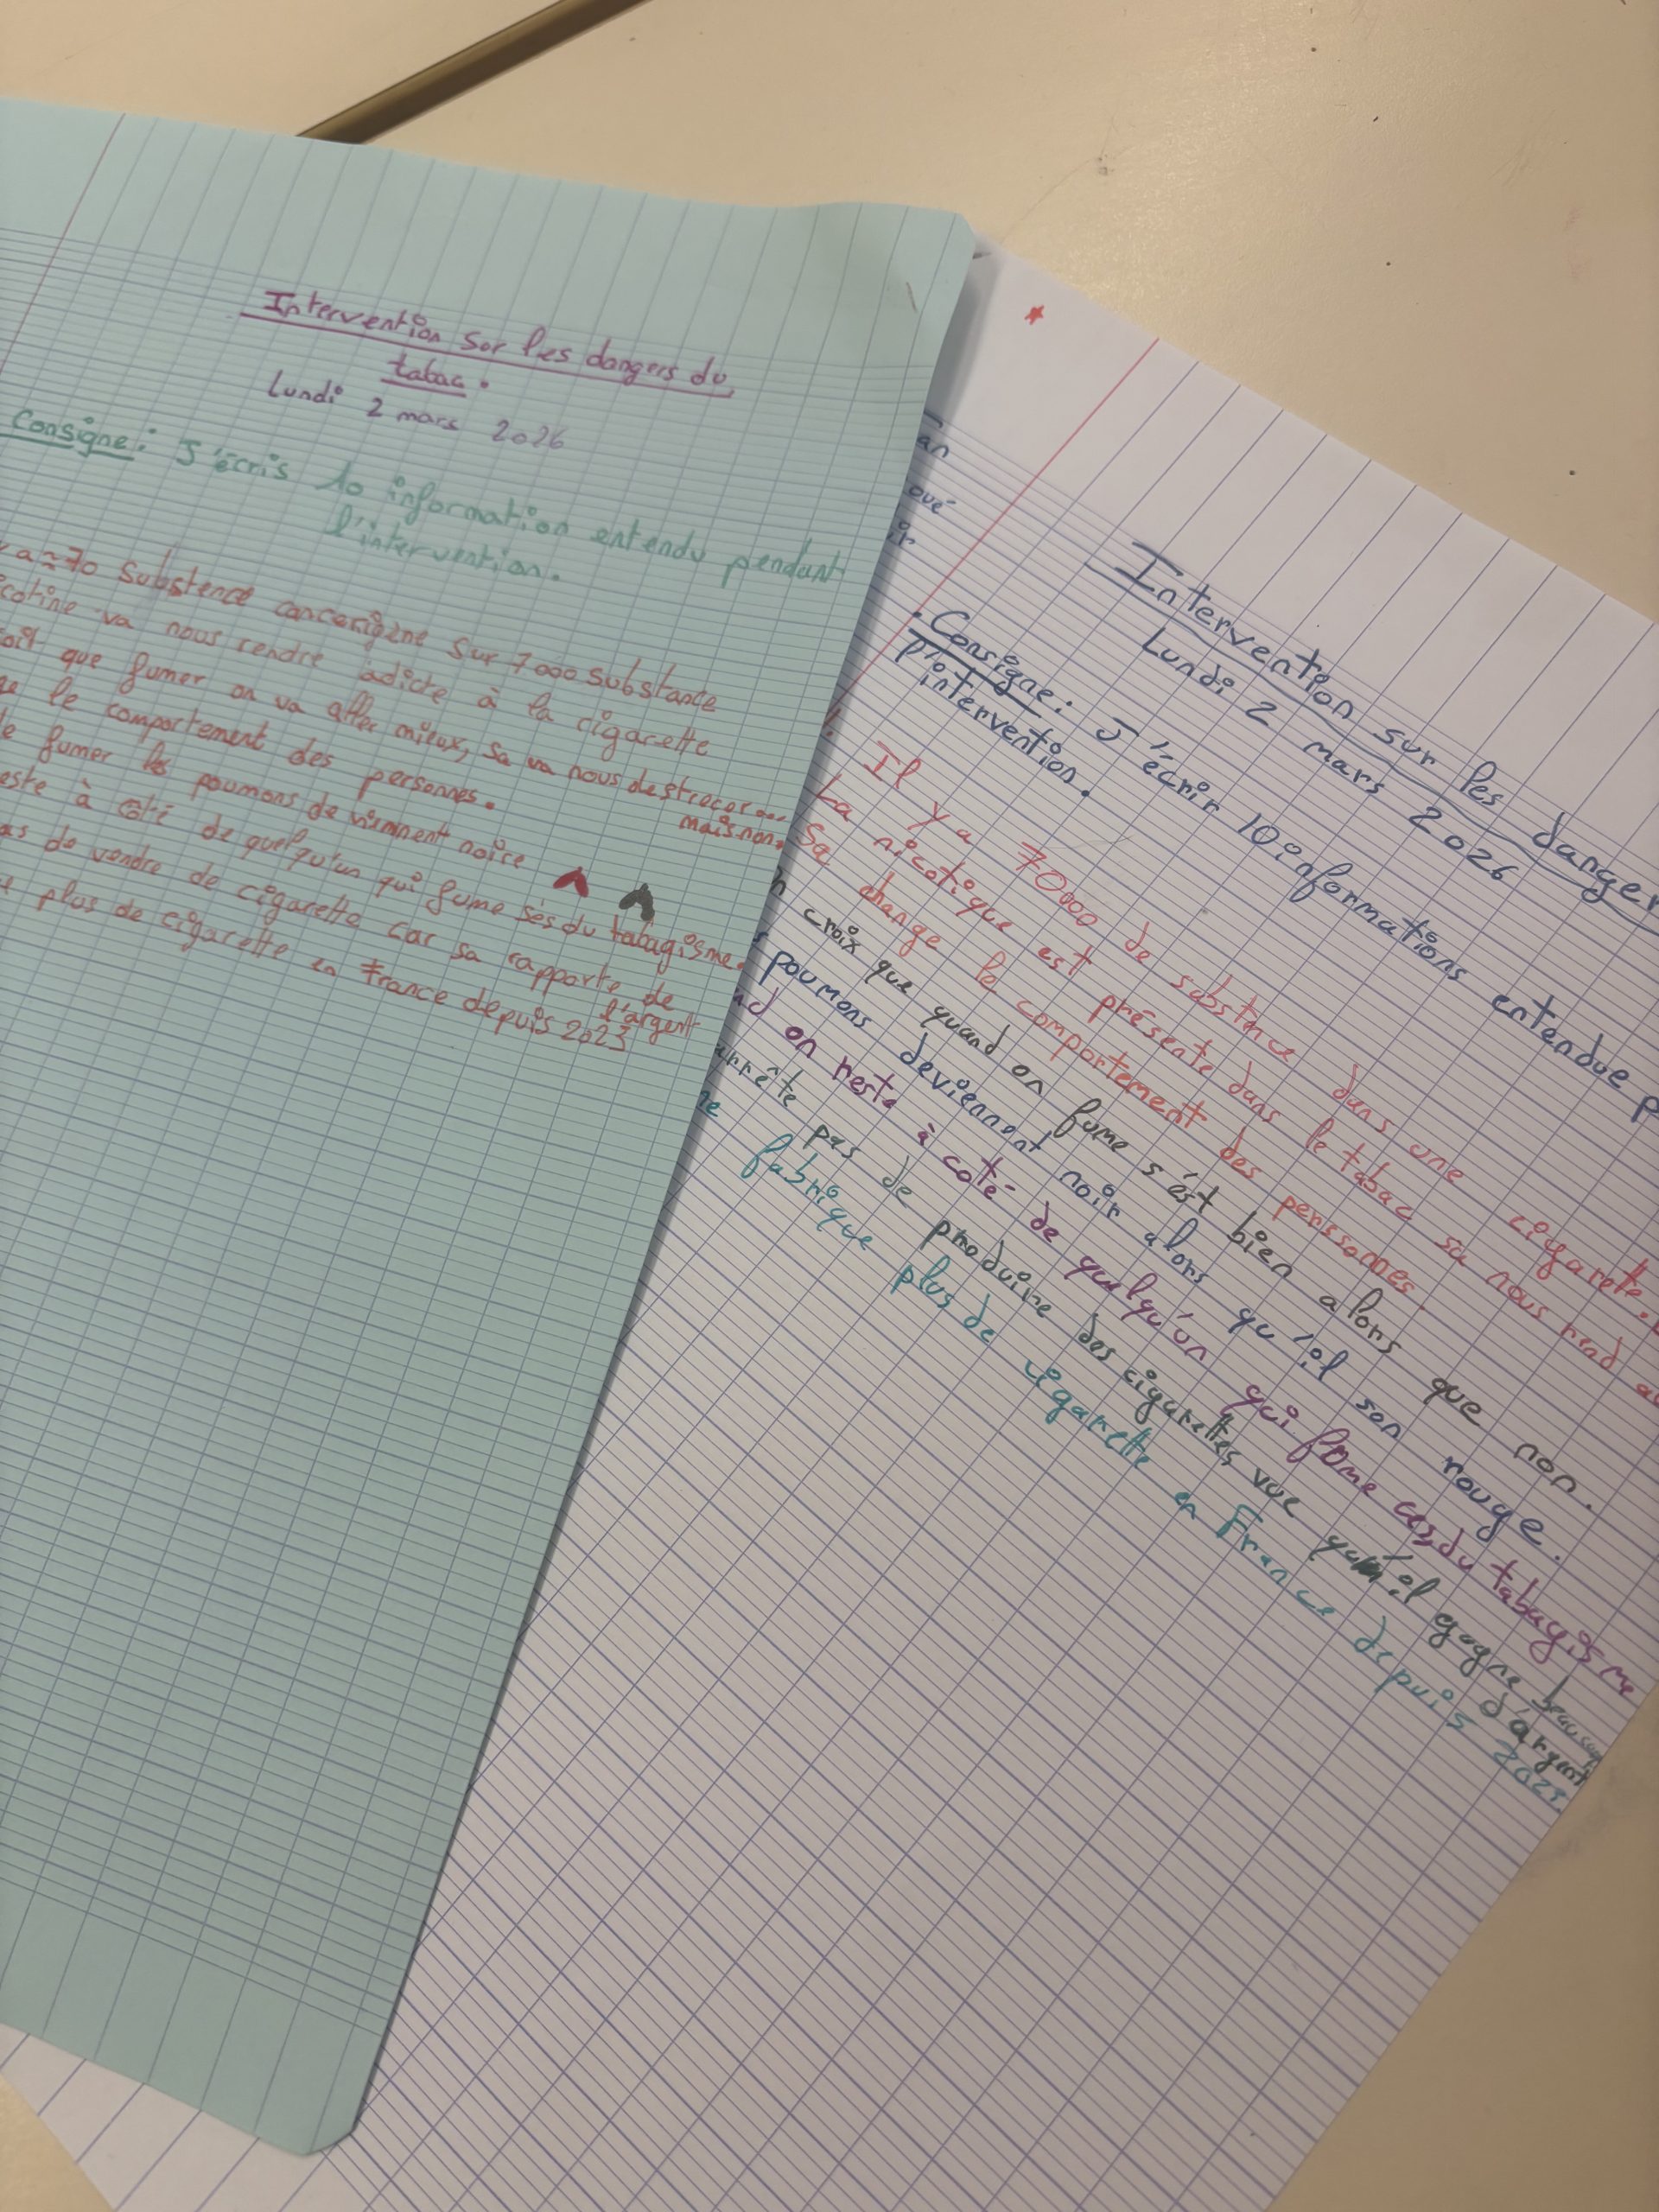 Intervention sur les dangers du
tabac.
Lundi 2 mars 2026
Consigne: J'écris 10 information entendu pendant
l'intervention.
a ≈ 70 Substence cancerigène sur 7000 substance
va nous rendre adicte à la cigarette
que fumer on va aller mieux, sa va nous destresser...
mais non.
le comportement des personnes.
fumer les poumons deviennent noire
à côté de quelqu'un qui fume sès du tabagisme.
de vendre de cigarette car sa rapporte de
l'argent
plus de cigarette en France depuis 2023
an
oué
ir
Intervention sur les danger
Lundi 2 mars 2026
. Consigne: J'écrir 10 informations entendue p
intervention.
Il y a 70000 de substence dans une cigarette.
La nicotique est présente dans le tabac sa nous rend
Sa change le comportement des perssonnes.
croix que quand on fume s'ést bien alors que non.
poumons deviennent noir alors qu'il son rouge.
on reste à coté de quelqu'un qui fume ces du tabagisme
arrête pas de produire des cigarettes vue qu'il gagne beaucoup
d'argent
fabrique plus de cigarette en France depuis